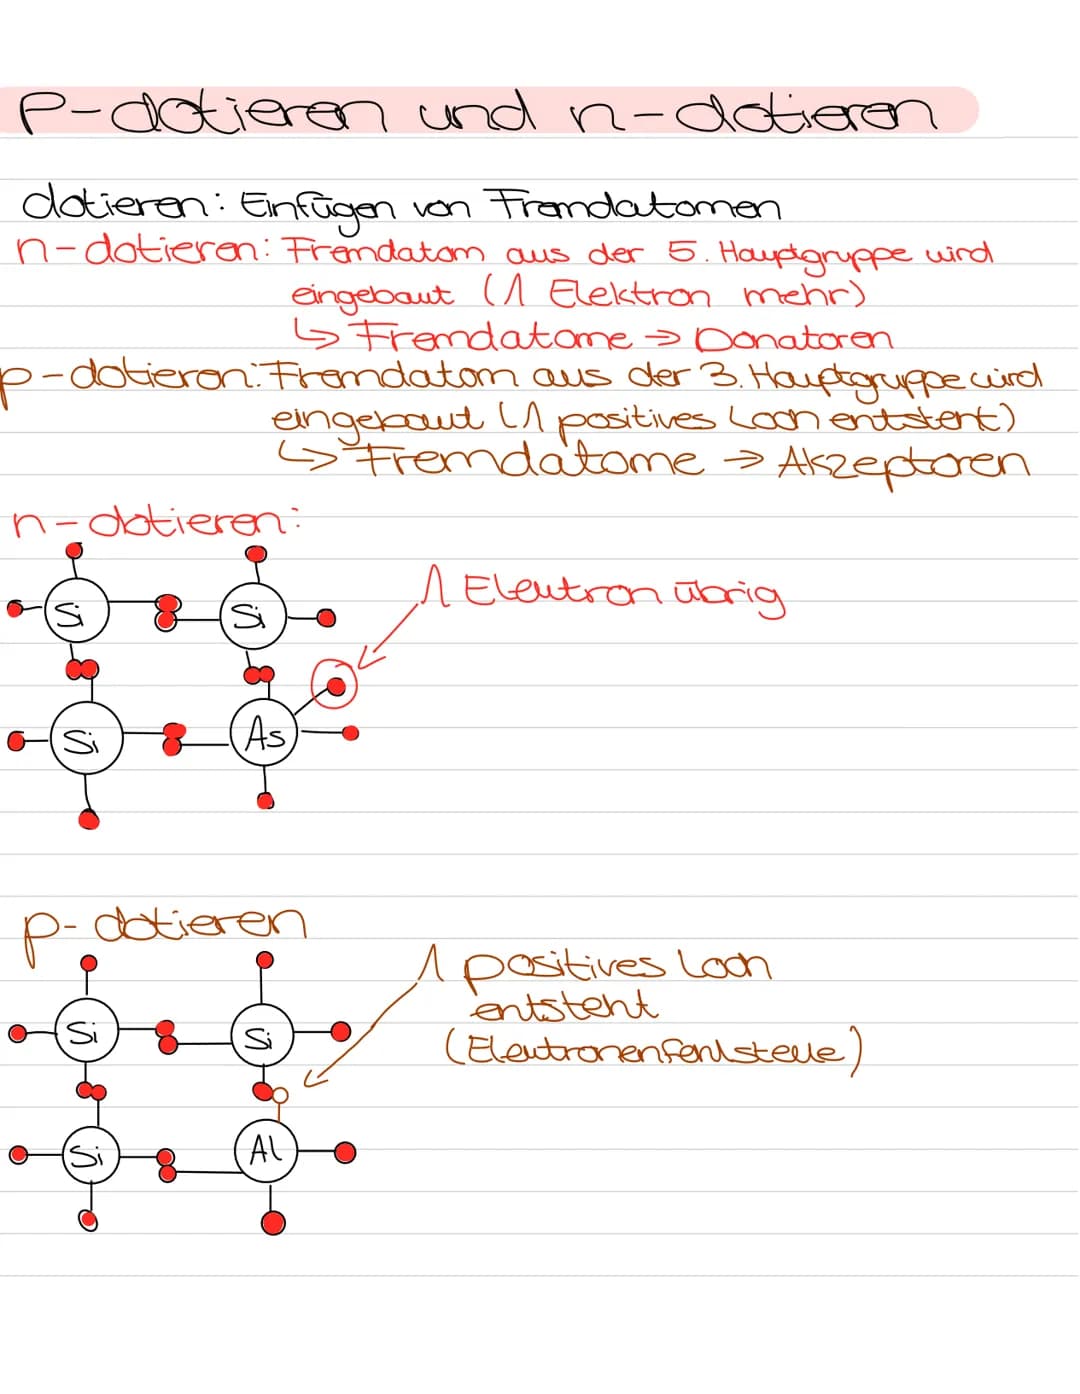 p-dotieren und n-dotieren
dotieren: Einfügen von Fremdatomen
n-dotieren: Fremdatom aus der 5. Hauptgruppe wird
eingebaut (1 Elektron mehr)
↳ Fremdatome → Donatoren
p-dotieren: Fremdatom aus der 3. Hauptgruppe wird
eingebaut (1 positives Loch entsteht)
↳ Fremdatome → Akzeptoren
n-dotieren:
1 Elektron übrig
Si Si
Si As
p-dotieren
1 positives Loch
entsteht
(Elektronenfehlstelle)
Si Si
Si Al